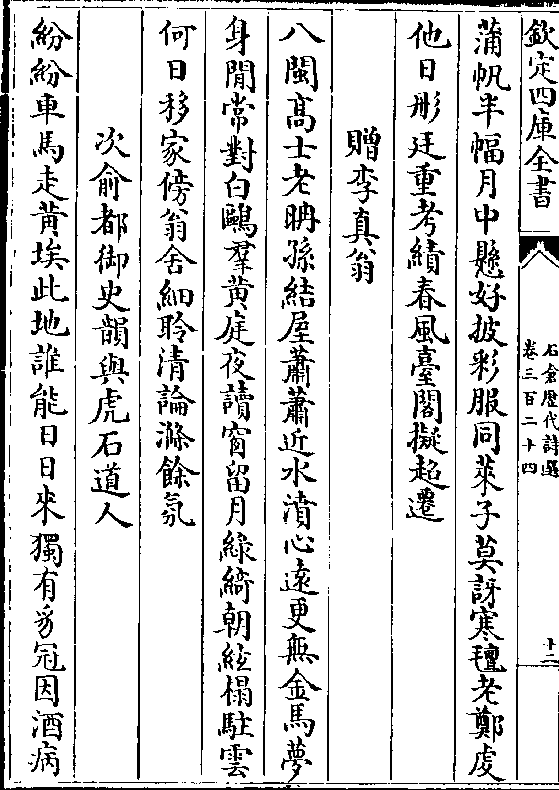 欽定四庫全書
石倉歷代詩選
卷三百二十四
十二
蒲帆半幅月中懸好披彩服同萊子莫訝寒氊老鄭虔
他日彤廷重考績春風臺閣擬超遷
贈李真翁
八閩髙士老耼孫結屋蕭蕭近水濆心逺更無金馬夢
身閒常對白鷗羣黄庭夜讀窗留月緑綺朝絃榻駐雲
何日移家傍翁舍細聆清論滌餘氛
次俞都御史韻與虎石道人
紛紛車馬走黄埃此地誰能日日來獨有豸冠因酒病